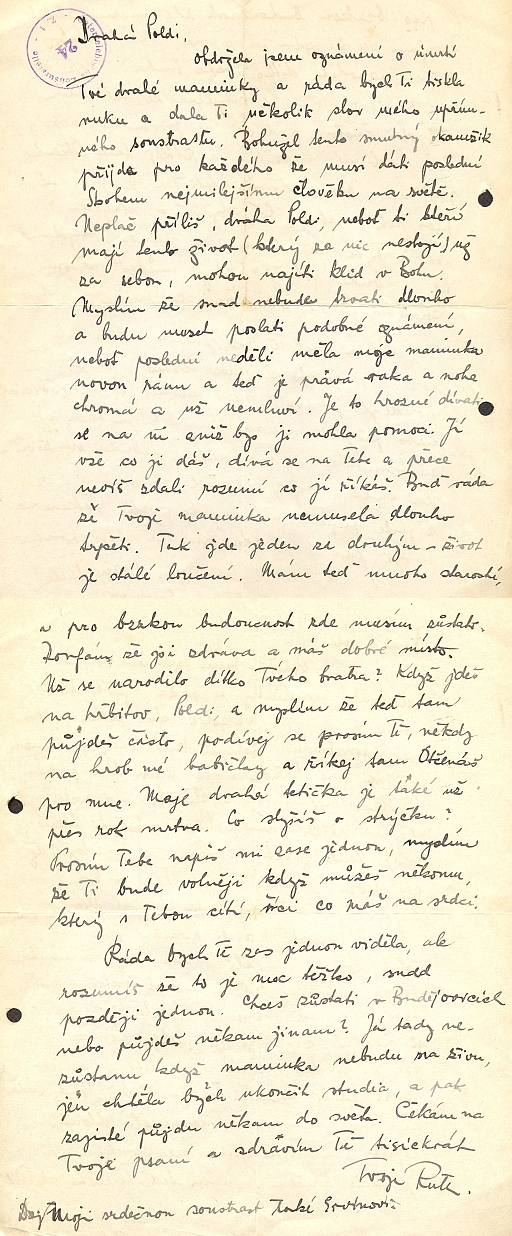 Drahá Poldi,
obdržela jsem oznámení o úmrtí
Tvé drahé maminky a ráda bych Ti tiskla
ruku a dala Ti několik slov mého upřím-
ného soustrastu. Bohužel tento smutný okamžik
přijde pro každého že musí dáti poslední
Sbohem nejmilejšímu člověku na světě.
Neplač příliš, drahá Poldi, neboť ti kteří
mají tento život (který za nic nestojí) už
za sebou, mohou najíti klid v Bohu.
Myslím že snad nebude trvati dlouho
a budu muset poslati podobné oznámení,
neboť poslední neděli měla moje maminka
novou ránu a teď je pravá ruka a noha
chromá a už nemluví. Je to hrozné dívati
se na ní aniž bys jí mohla pomoci. Jí
vše co jí dáš, dívá se na Tebe a přece
nevíš zdali rozumí co jí říkáš. Buď ráda
že Tvoje maminka nemusela dlouho
trpěti. Tak jde jeden za druhým – život
je stálé loučení. Mám teď mnoho starostí,
a pro brzkou budoucnost zde musím zůstati.
Doufám že jsi zdráva a máš dobré místo.
Už se narodilo dítko Tvého bratra? Když jdeš
na hřbitov, Poldi, a myslím že teď tam
půjdeš často, podívej se prosím Tě, někdy
na hrob mé babičky a říkej tam Otčenáš
pro mne. Moje drahá tetička je také už
přes rok mrtva. Co slyšíš o strýčku?
Prosím Tebe napiš mi zase jednou, myslím
že Ti bude volněji když můžeš někomu,
který s Tebou cítí, říci co máš na srdci.
Ráda bych Tě zas jednou viděla, ale
rozumíš že to je moc těžko, snad
později jednou. Chceš zůstati v Budějovicích
nebo půjdeš někam jinam? Já tady ne-
zůstanu když maminka nebude na živu,
jen chtěla bych ukončit studia, a pak
zajisté půjdu někam do světa. Čekám na
Tvoje psaní a zdravím Tě tisíckrát
Tvoje Ruth.
Moji srdečnou soustrast také